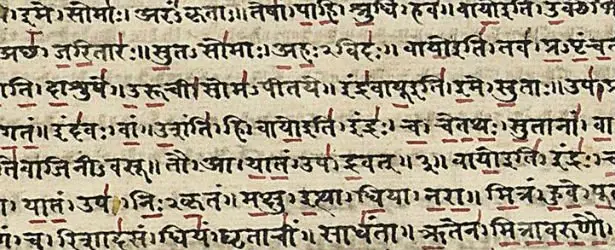 । इमे । सोमाः । अरंऽकृताः ॥ तेषां । पाहि । श्रुधि । हवं ॥ वायो इति ।
अच्छ । जरितारः ॥ सुतऽसोमाः । अहःऽविदः ॥ वायो इति । तव । प्रऽपृंच
ति । दाशुषे । उरूची । सोमऽपीतये ॥ इंद्रवायू इति । इमे । सुताः ॥ उप ।
गतं ॥ इंदवः । वां । उशंति । हि । वायो इति । इंद्रः । च । चेतथः । सुतानां । वा
तिवाजिनीऽवसू ॥ तौ । आ । यातं । उप । द्रवत् ॥ ३ ॥ वायो इति । इंद्रः ।
। यातं । उप । निःऽकृतं ॥ मक्षु । इत्था । धिया । नरा ॥ मित्रं । हुवे । पू
। च । रिशादसं । धियं । घृताचीं । साधंता ॥ ऋतेन । मित्रावरुणौ